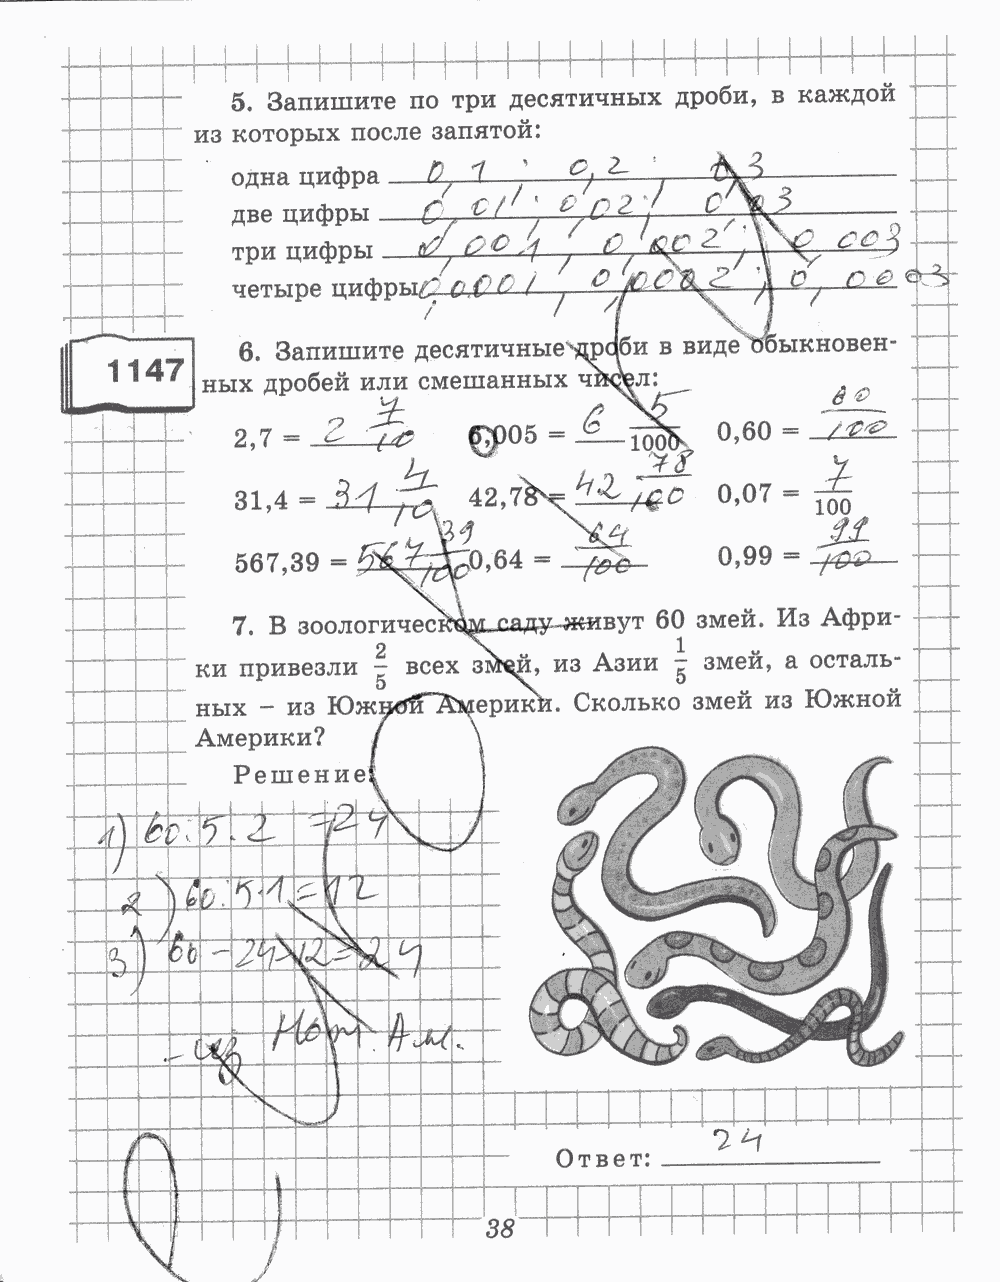 5. Запишите по три десятичных дроби, в каждой
из которых после запятой:
одна цифра 0,1; 0,2; 0,3
две цифры 0,01; 0,02; 0,03
три цифры 0,001; 0,002; 0,003
четыре цифры 0,0001; 0,0002; 0,0003
1147
6. Запишите десятичные дроби в виде обыкновен-
ных дробей или смешанных чисел:
2,7 = 2 7/10 6,005 = 6 5/1000 0,60 = 60/100
31,4 = 31 4/10 42,78 = 42 78/100 0,07 = 7/100
567,39 = 567 39/100 0,64 = 64/100 0,99 = 99/100
7. В зоологическом саду живут 60 змей. Из Афри-
ки привезли 2/5 всех змей, из Азии 1/5 змей, а осталь-
ных – из Южной Америки. Сколько змей из Южной
Америки?
Решение:
1) 60:5·2 =24
2) 60:5·1=12
3) 60-24-12=24
- из Юж. Ам.
Ответ: 24
38